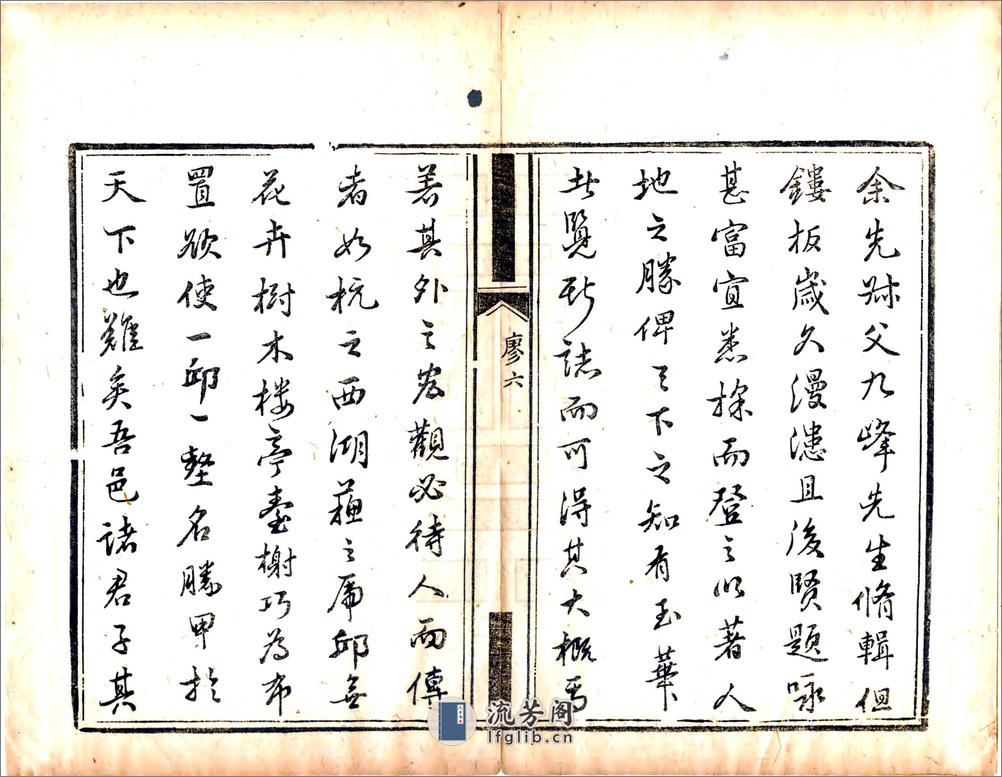 余先叔父九峰先生脩輯但
鏤板歲久漫漶且後賢題咏
甚富宜悉採而登之以著人
地之勝俾天下之知有玉華
者覽斯誌而可得其大概焉
廖六
若其外之觀必待人而傳
者如杭之西湖蘇之虎邱無
花卉樹木楼亭臺榭巧為布
置欲使一邱一壑名勝甲於
天下也難矣吾邑諸君子其
流芳阁
lfglib.cn